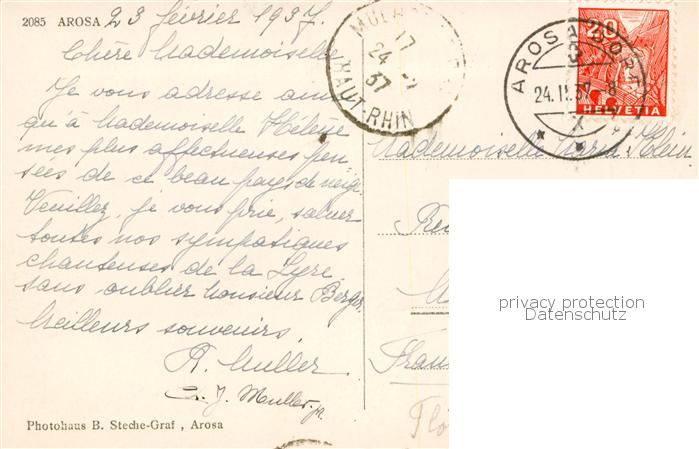 2085 AROSA 23 février 1937.
Chère Mademoiselle
Je vous adresse ain
qu'à Mademoiselle Hélène
mes plus affectueuses pen
sées de ce beau pays de neige
Veuillez, je vous prie, saluer
toutes nos sympatiques
chanteuses de la Lyre
sans oublier Monsieur Berger.
Meilleurs souvenirs,
R. Muller
J. Muller jr.
Photohaus B. Steche-Graf , Arosa
17
24
37
HAUT-RHIN
AROSA DORF
24.II.37. 8
X
20
HELVETIA
Mademoiselle Maria Klein
privacy protection
Datenschutz